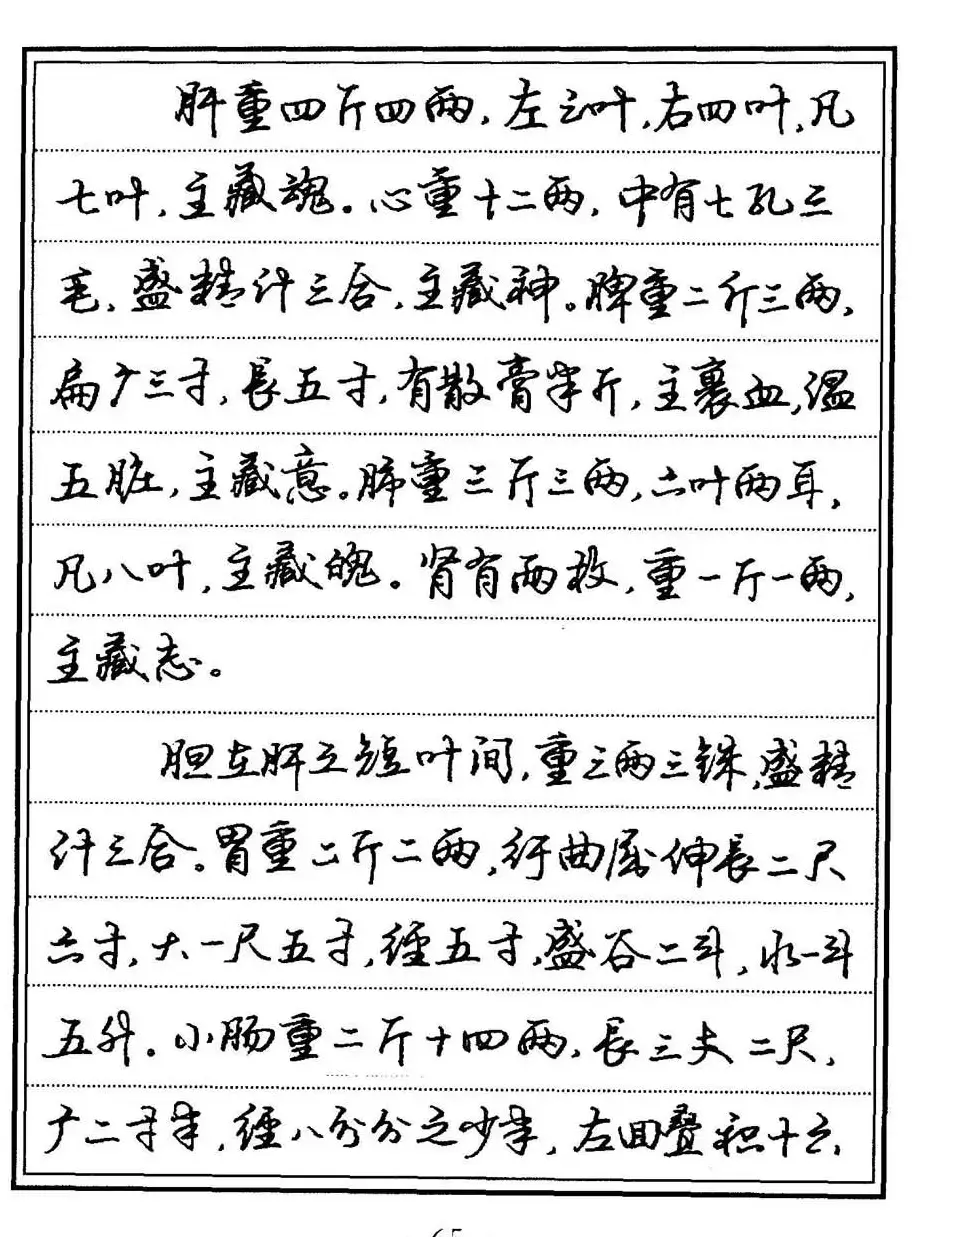 肝重四斤四两,左三叶,右四叶,凡
七叶,主藏魂。心重十二两,中有七孔三
毛,盛精汁三合,主藏神。脾重二斤三两,
扁广三寸,長五寸,有散膏半斤,主裹血,温
五脏,主藏意。肺重三斤三两,六叶两耳,
凡八叶,主藏魄。肾有两枚,重一斤一两,
主藏志。
胆在肝之短叶间,重三两三铢,盛精
汁三合。胃重二斤二两,纡曲屈伸長二尺
六寸,大一尺五寸,經五寸,盛谷二斗,水一斗
五升。小肠重二斤十四两,長三丈二尺,
广二寸半,經八分分之少半,左回叠积十六